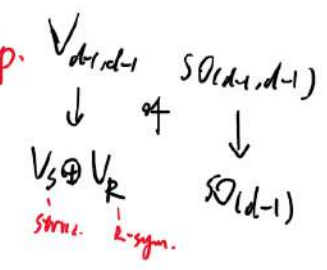 p. V_{d-1,d-1} of SO(d-1,d-1)
↓ ↓
V_S ⊕ V_R SO(d-1)
R-sym.